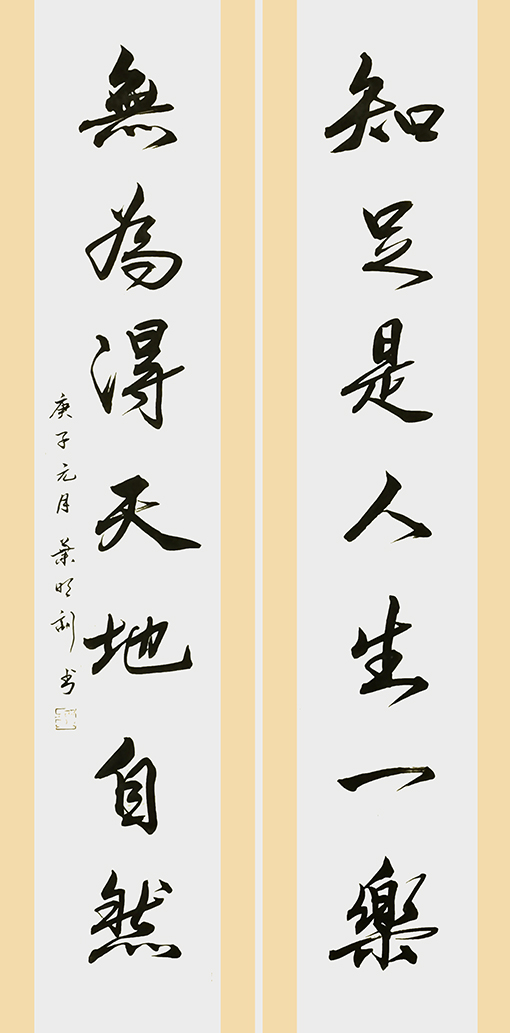 知足是人生一樂
無為得天地自然
庚子元月 葉明利书